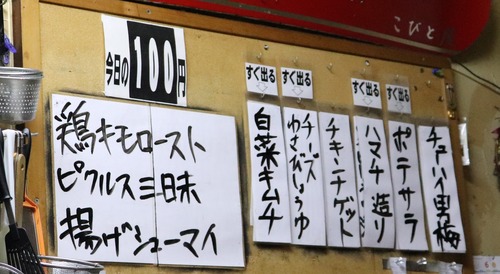 こびと
今日の100円
鶏キモロースト
ピクルス三昧
揚げシューマイ
すぐ出る
すぐ出る
すぐ出る
すぐ出る
白菜キムチ
チーズわさびしょうゆ
チキンナゲット
ハマチ造り
ポテサラ
チューハイ男梅